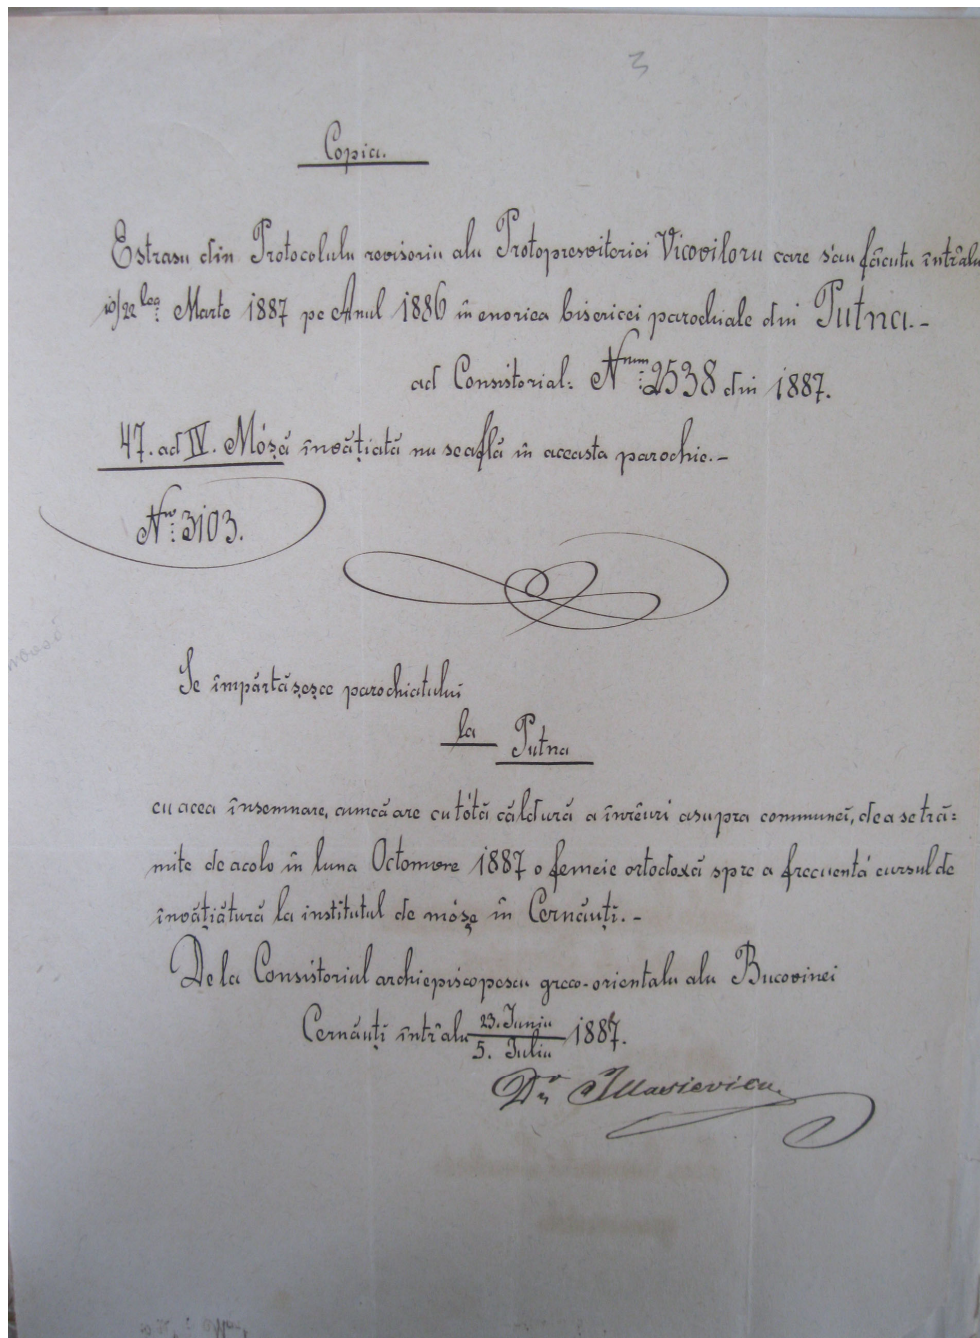 3
Copia.
Estrasu din Protocolulu revisoriu alu Protopresviteriei Vicoviloru care s'au făcutu într'alu
10/22 lea Marte 1887 pe Anul 1886 în enoriea bisericei parochiale din Putna.-
ad Consistorial: Nrum: 2538 din 1887.
47. ad IV. Móșă învățiată nu se află în aceasta parochie.-
Nro: 3103.
Se împărtășesce parochiatului
la Putna
cu acea însemnare, cumcă are cu tótă căldură a înrîuri asupra communeĭ, de a se tră=
mite de acolo în luna Octomvre 1887 o femeie ortodoxă spre a frecuentá cursul de
învățiătură la institutul de móșe în Cernăuțĭ.-
De la Consistoriul archiepiscopescu greco-orientalu alu Bucovinei
Cernăuțĭ într'alu 23. Juniu / 5. Juliu 1887.